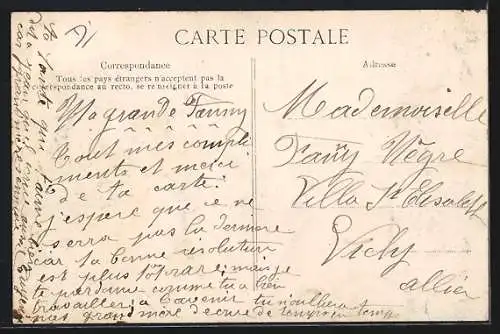 CARTE POSTALE
Correspondance
Tous les pays étrangers n'acceptent pas la
correspondance au recto, se renseigner à la poste
Adresse
Ma grande Fanny
tout mes compli
ments et merci
de ta carte.
j'espère que ce ne
serra pas la dernière
car ta bonne résolution
est plus tôt rare mais je
te pardonne comme tu a bien
travailler a l'avenir tu n'oublieras
pas grand mère decrire de temps en temps
Mademoiselle
Fany Nègre
Villa St Elisabeth
Vichy
allier
ta qui t'aime bien